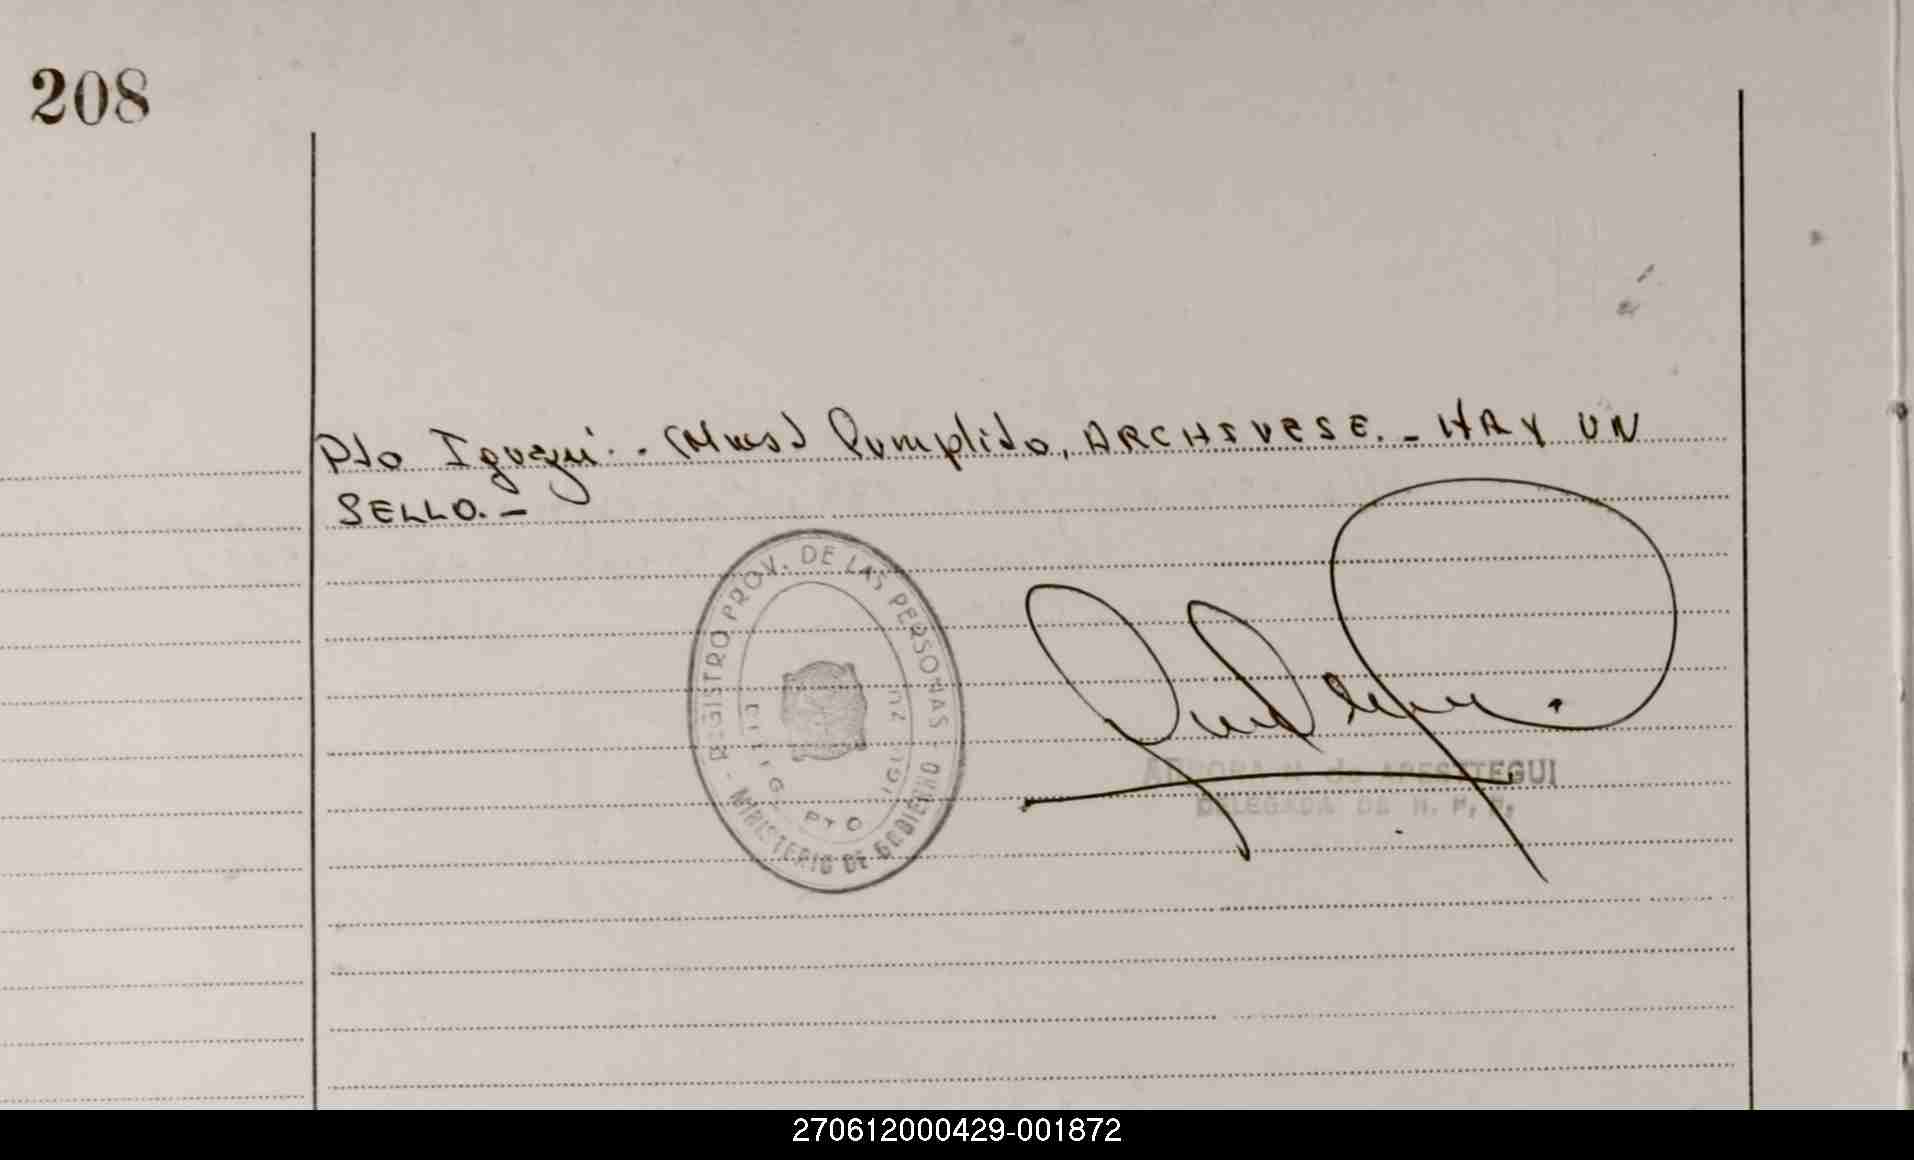 208
Pto Iguazú.- (Mnes) Cumplido, ARCHIVESE.- HAY UN
SELLO.-
- REGISTRO PROV. DE LAS PERSONAS -
MINISTERIO DE GOBIERNO
PTO
ARESTEGUI
DELEGADA DE
270612000429-001872